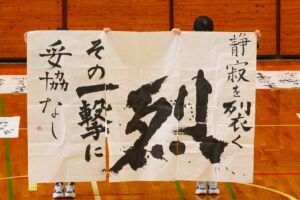 静寂を裂く
烈
その一撃に
妥協なし